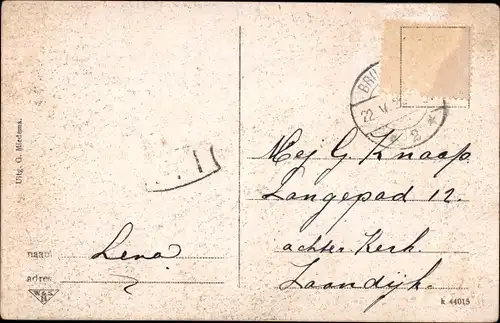 Uitg. G. Miedema.
BRU
22 V
* 2 *
Mej G Knaap.
Langepad 12.
achter Kerk.
Zaandijk.
naam
Lena
adres
W&S
k 44015